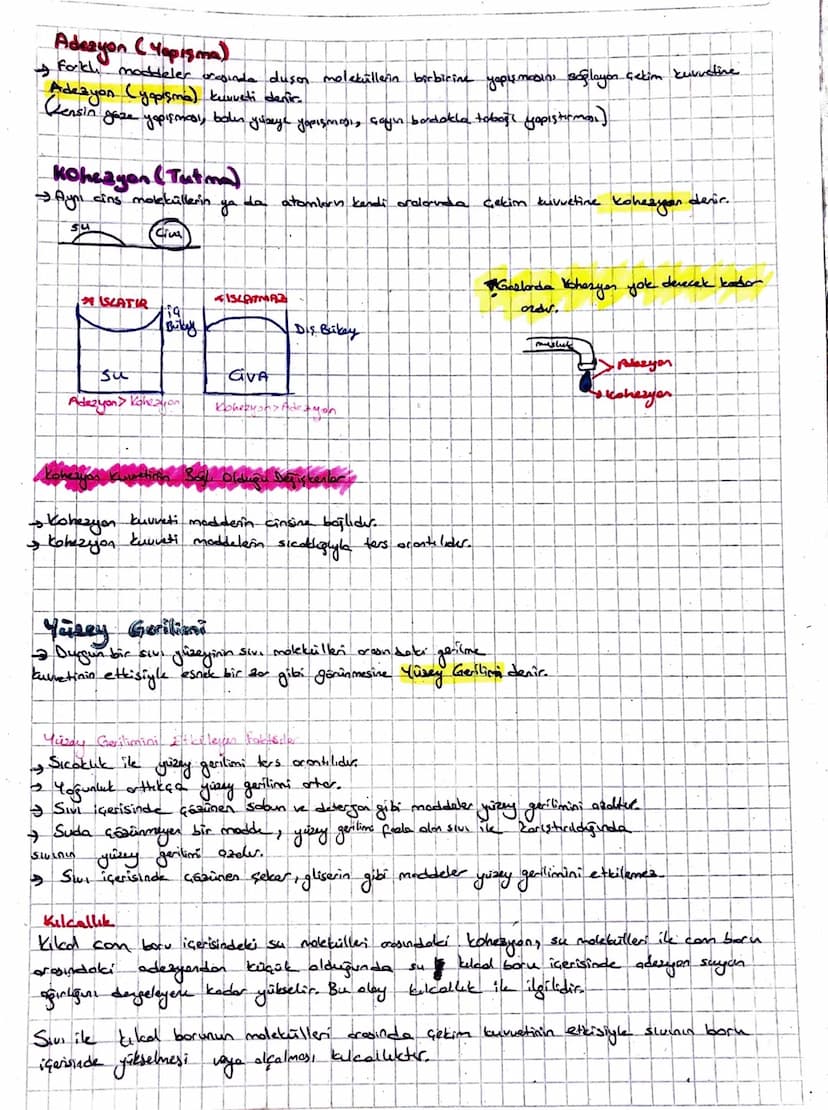 Adezyon (Yapışma)
→ Farklı maddeler arasında duson moleküllerin birbirine yapışmasını sağlayan çekim kuvvetine
Adezyon (yapışma) kuvveti denir.
(kensin göze yapışması, balın yüzeye yapışması, çayın bardakla tabağı yapıştırması)
Kohezyon (Tutma)
→ Aynı cins moleküllerin ya da atomların kendi aralarında çekim kuvvetine kohezyon denir.
su Civa
* Gazlarda kohezyon yok denecek kadar
azdır.
* ISLATIR * ISLATMAZ
iç
Bükey Dış Bükey
musluk
Adezyon
SU CİVA
Kohezyon
Adezyon > Kohezyon Kohezyon > Adezyon
Kohezyon Kuvvetinin Bağlı Olduğu Değişkenler
→ Kohezyon kuvveti maddenin cinsine bağlıdır.
→ Kohezyon kuvveti maddelerin sıcaklığıyla ters orantılıdır.
Yüzey Gerilimi
→ Durgun bir sıvı yüzeyinin sıvı molekülleri arasındaki gerilme
kuvvetinin etkisiyle esnek bir zar gibi görünmesine Yüzey Gerilimi denir.
Yüzey Gerilimini Etkileyen Faktörler
→ Sıcaklık ile yüzey gerilimi ters orantılıdır.
→ Yoğunluk arttıkça yüzey gerilimi artar.
→ Sıvı içerisinde çözünen sabun ve deterjan gibi maddeler yüzey gerilimini azaltır.
→ Suda çözünmeyen bir madde, yüzey gerilimi fazla olan sıvı ile karıştırıldığında
sıvının yüzey gerilimi azalır.
→ Sıvı içerisinde çözünen şeker, gliserin gibi maddeler yüzey gerilimini etkilemez.
Kılcallık
Kılcal cam boru içerisindeki su molekülleri arasındaki kohezyon, su molekülleri ile cam boru
arasındaki adezyondan küçük olduğunda su kılcal boru içerisinde adezyon suyun
ağırlığını dengeleyene kadar yükselir. Bu olay kılcallık ile ilgilidir.
Sıvı ile kılcal borunun molekülleri arasında çekim kuvvetinin etkisiyle sıvının boru
içerisinde yükselmesi veya alçalması kılcallıktır.